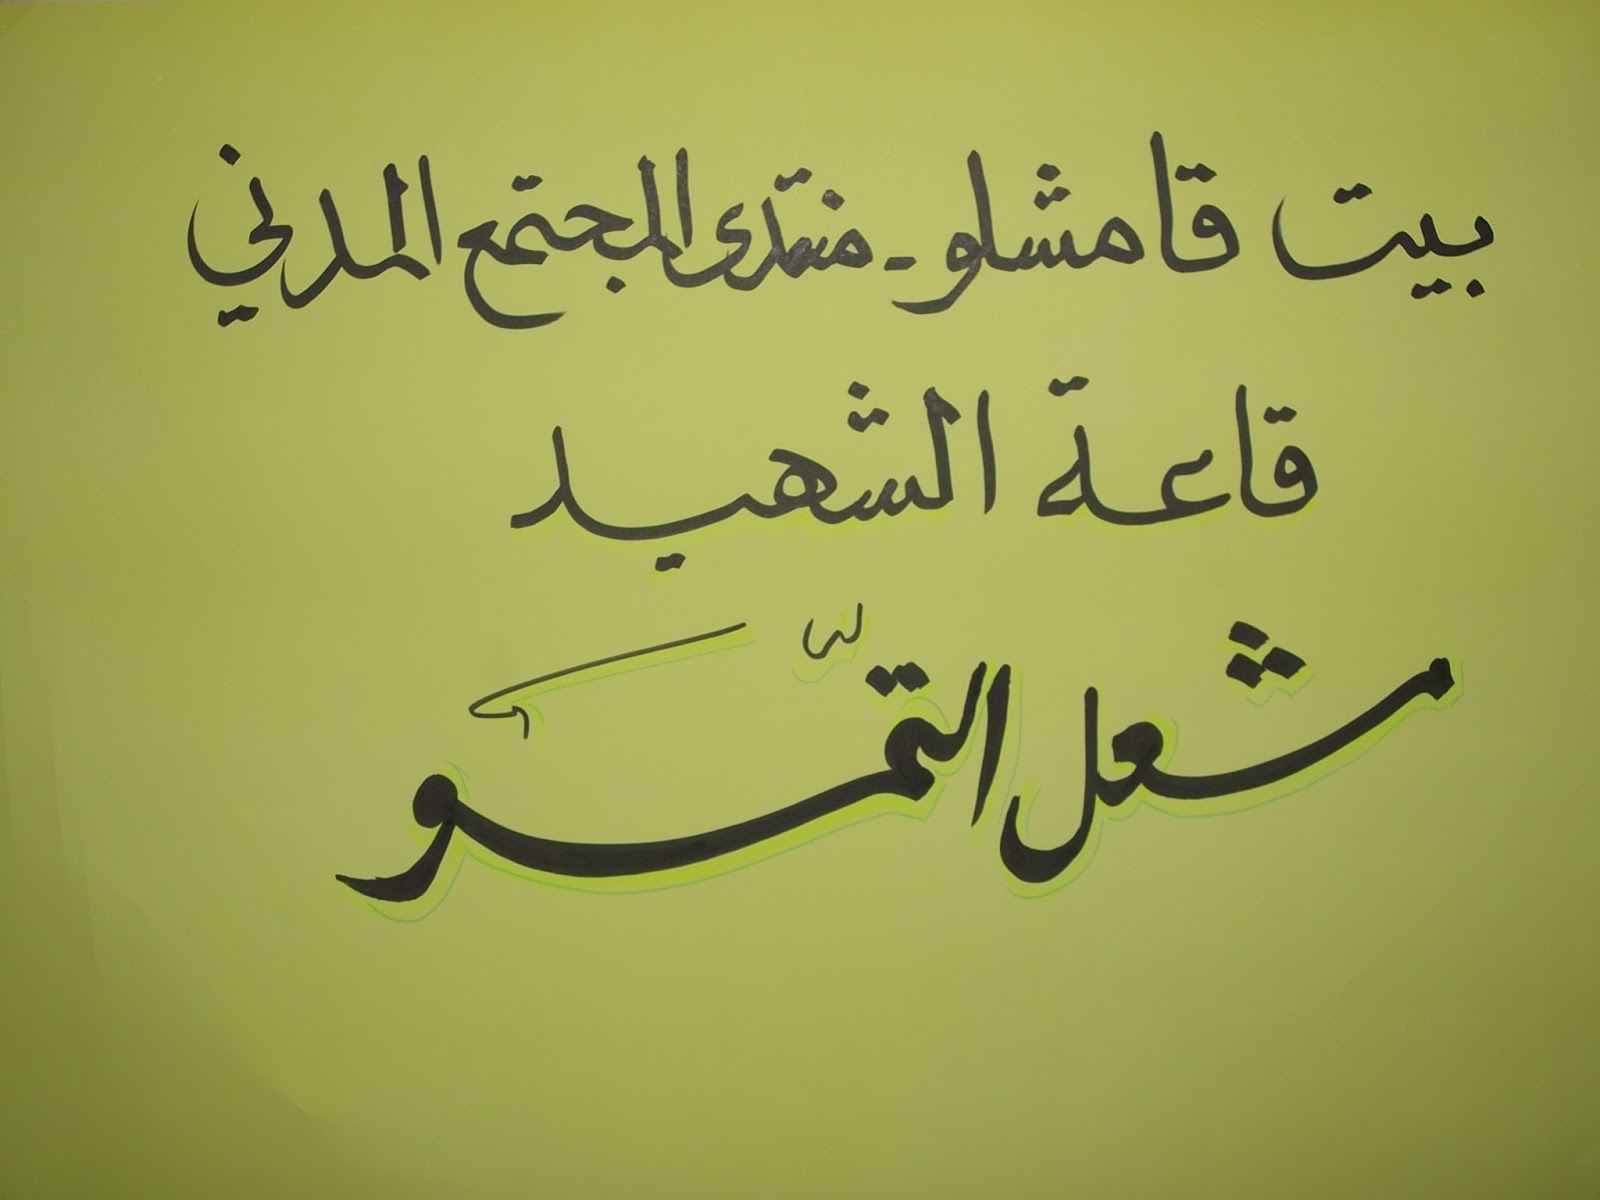 بيت قامشلو - منتدى المجتمع المدني
قاعة الشهيد
مشعل التمّو